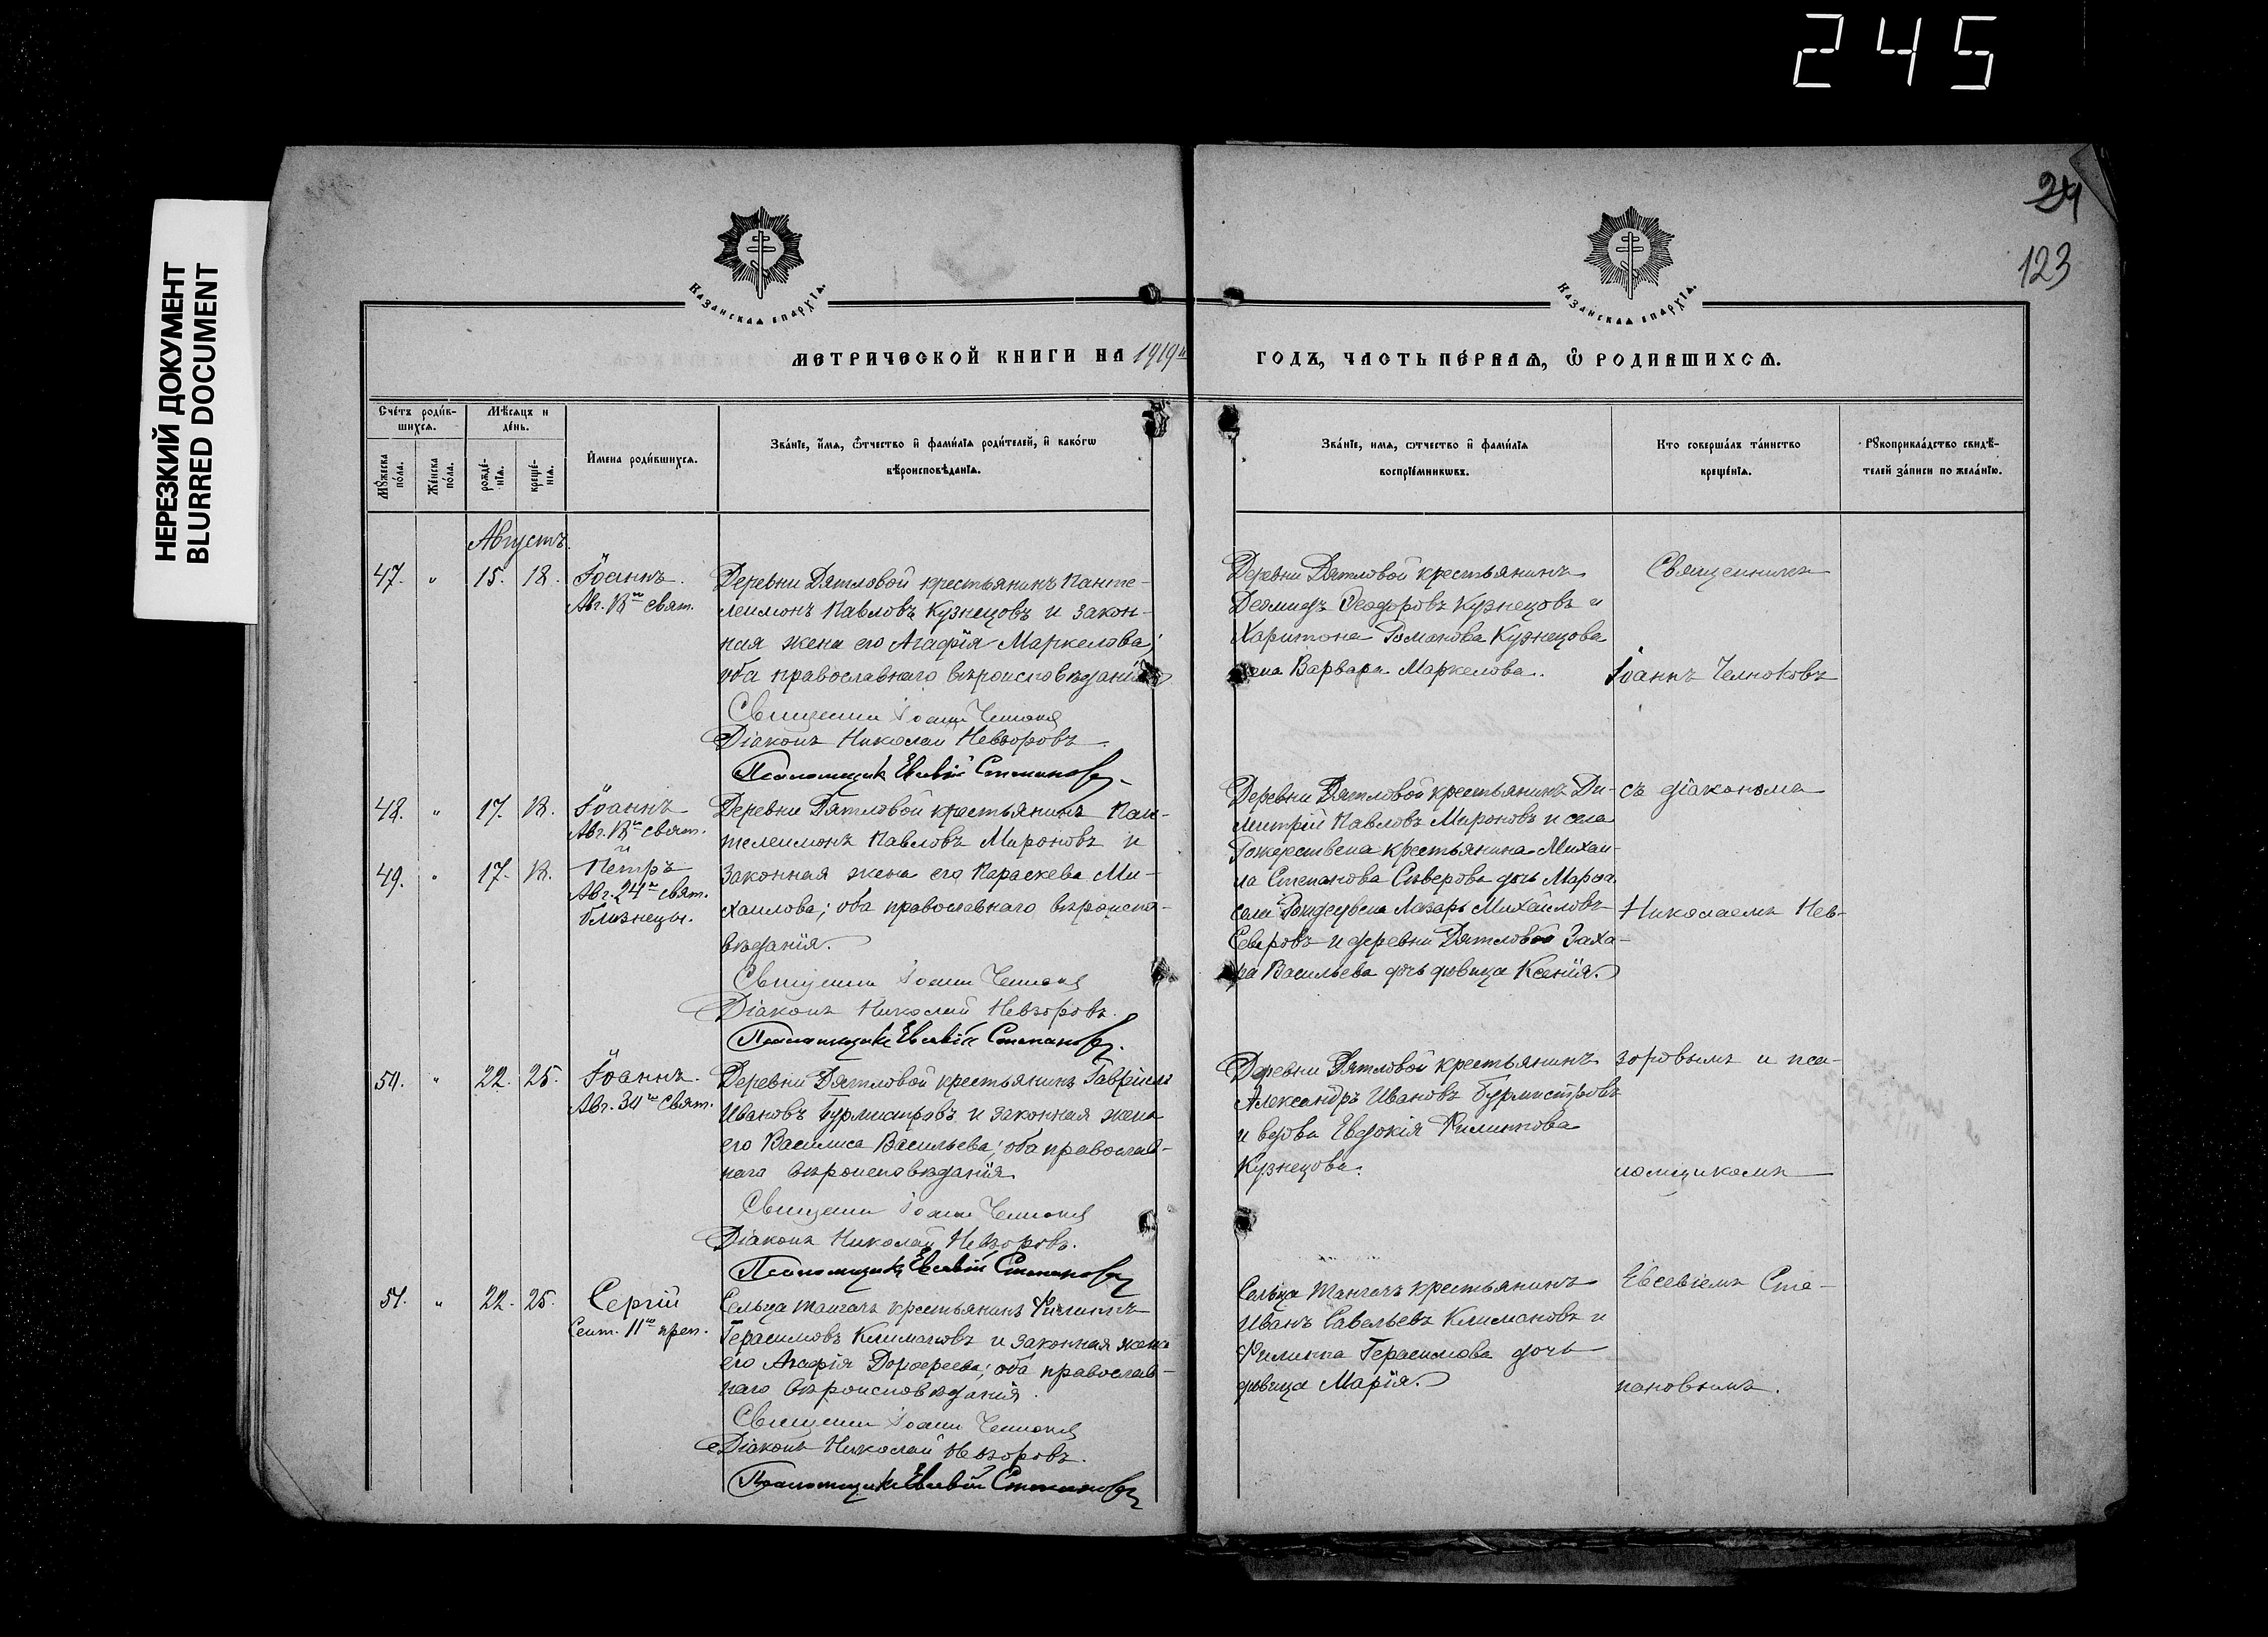 245
НЕРЕЗКИЙ ДОКУМЕНТ
BLURRED DOCUMENT
24
123
Казанская епархїѧ.
Казанская епархїѧ.
МЕТРИЧЕСКОЙ КНИГИ НА 1919й
ГОДЪ, ЧАСТЬ ПЕ́РВАѦ, Ѿ РОДИВШИХСѦ.
Сче́тъ роди́вшихсѧ.
Му́жеска по́ла.
Же́нска по́ла.
Мѣ́сѧцъ и де́нь.
рожде́нїѧ.
креще́нїѧ.
И҆мена роди́вшихсѧ.
Зва́нїе, и҆́мѧ, ѻ҆́тчество и҆ фами́лїѧ роди́телей, и҆ како́гѡ
вѣроисповѣ́данїѧ.
Зва́нїе, имѧ, ѻтчество и҆ фами́лїѧ
воспрїе́мникѡвъ.
Кто соверша́лъ та́инство
креще́нїѧ.
Рꙋкоприкла́дство свидѣ́-
телей за́писи по жела́нїю.
Августъ.
47. " 15. 18. Іоаннъ.
Авг. 18го свят.
Деревни Дятловой крестьянинъ Панте-
леимонъ Павловъ Кузнецовъ и закон-
ная жена его Агафія Маркелова;
оба православнаго вѣроисповѣданія
Священни Іоанн Челноков
Діаконъ Николай Невзоровъ.
Псаломщик Евсевій Степановъ
Деревни Дятловой крестьянинъ
Деомидъ Ѳеодоровъ Кузнецовъ и
Харитона Романова Кузнецова
жена Варвара Маркелова.
Священникъ
Іоаннъ Челноковъ
48. " 17. 18. Іоаннъ
Авг. 18го свят.
и
49. " 17. 18. Петръ
Авг. 24го свят.
близнецы.
Деревни Дятловой крестьянинъ Пан-
телеимонъ Павловъ Мироновъ и
законная жена его Параскева Ми-
хаилова; оба православнаго вѣроиспо-
вѣданія.
Священни Іоанн Челноков
Діаконъ Николай Невзоровъ.
Псаломщикъ Евсевій Степановъ.
Деревни Дятловой крестьянинъ Ди-
митрій Павловъ Мироновъ и села
Рождествена крестьянина Михаи-
ла Степанова Сѣверова дочь Марѳа.
села Рождествена Лазарь Михаиловъ
Северовъ и деревни Дятловой Заха-
ра Васильева дочь дѣвица Ксенія.
съ діакономъ
Николаемъ Нев-
50. " 22. 25. Іоаннъ.
Авг. 30го свят.
Деревни Дятловой крестьянинъ Гавріилъ
Ивановъ Бурмистровъ и законная жена
его Василиса Васильева; оба православ-
наго вѣроисповѣданія
Священни Іоанн Челноков
Діаконъ Николай Невзоровъ.
Псаломщикъ Евсевій Степановъ
Деревни Дятловой крестьянинъ
Александръ Ивановъ Бурмистровъ
и вдова Евдокія Филиппова
Кузнецова.
зоровымъ и пса-
ломщикомъ
51. " 22. 25. Сергій
Сент. 11го преп.
Сельца Тангачъ крестьянинъ Филиппъ
Герасимовъ Климановъ и законная жена
его Агафія Дороѳеева; оба православ-
наго вѣроисповѣданія.
Священни Іоанн Челноков
Діаконъ Николай Невзоровъ.
Псаломщикъ Евсевій Степановъ
Сельца Тангачъ крестьянинъ
Иванъ Савельевъ Климановъ и
Филиппа Герасимова дочь
дѣвица Марія.
Евсевіемъ Сте-
пановымъ.